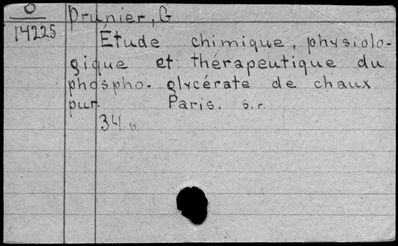 O
14225
Prunier, G
Etude chimique, physiolo-
gique et thérapeutique du
phospho-glycérate de chaux
pur. Paris. s.r.
34